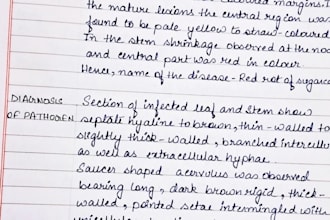 coloured margins. I
the mature lesions the central region was
found to be pale yellow to straw-coloured
In the stem shrinkage observed at the nod
and central part was red in colour
Hence, name of the disease - Red rot of sugarca
DIAGNOSIS OF PATHOGEN
Section of infected leaf and stem show
septate hyaline to brown, thin-walled to
slightly thick-walled, branched intercellu
as well as extracellular hyphae.
Saucer shaped acervulus was observed
bearing long, dark brown rigid, thick-
walled, pointed setae intermingled with